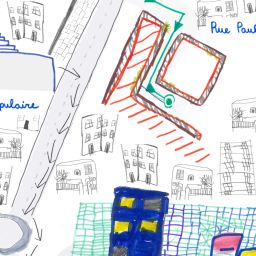 Rue Paul
pulaire